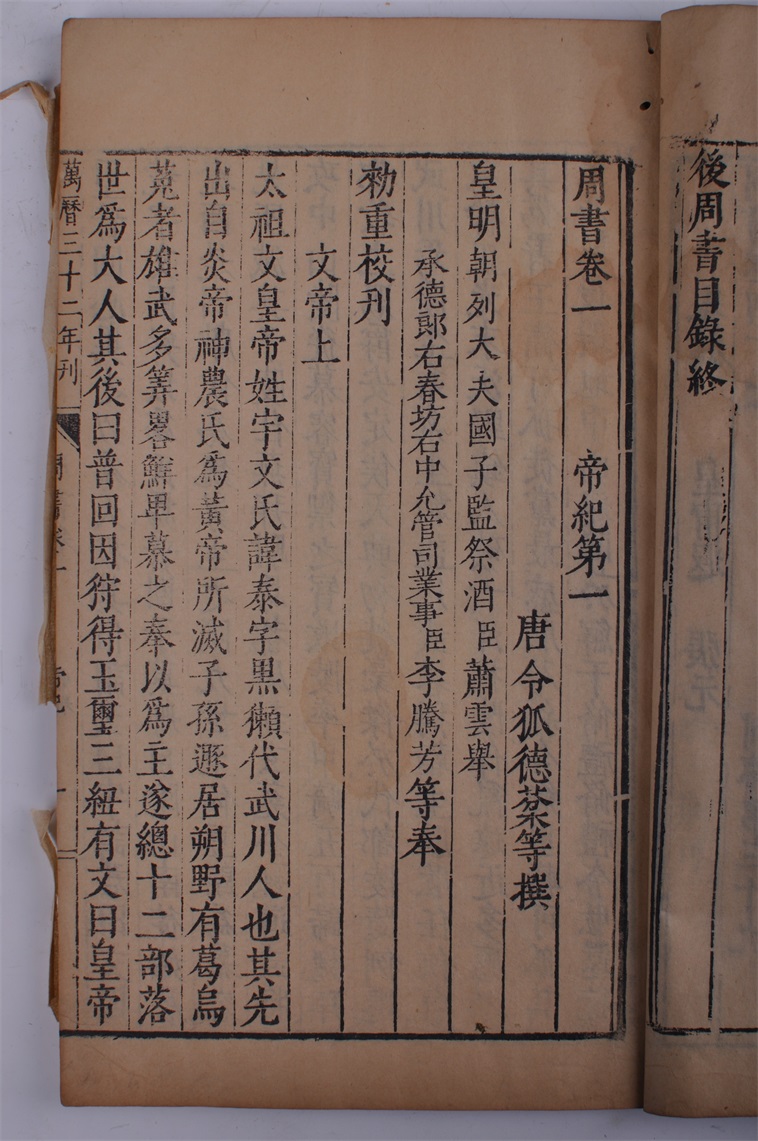 後周書目錄終
周書卷一　帝紀第一
唐令狐德棻等撰
皇明朝列大夫國子監祭酒臣蕭雲舉
承德郎右春坊右中允管司業事臣李騰芳等奉
勑重校刋
文帝上
太祖文皇帝姓宇文氏諱泰字黑獺代武川人也其先
出自炎帝神農氏爲黃帝所滅子孫遯居朔野有葛烏
菟者雄武多筭畧鮮卑慕之奉以爲主遂總十二部落
世爲大人其後曰普回因狩得玉璽三紐有文曰皇帝
萬曆三十二年刋
周書卷一
帝紀
一